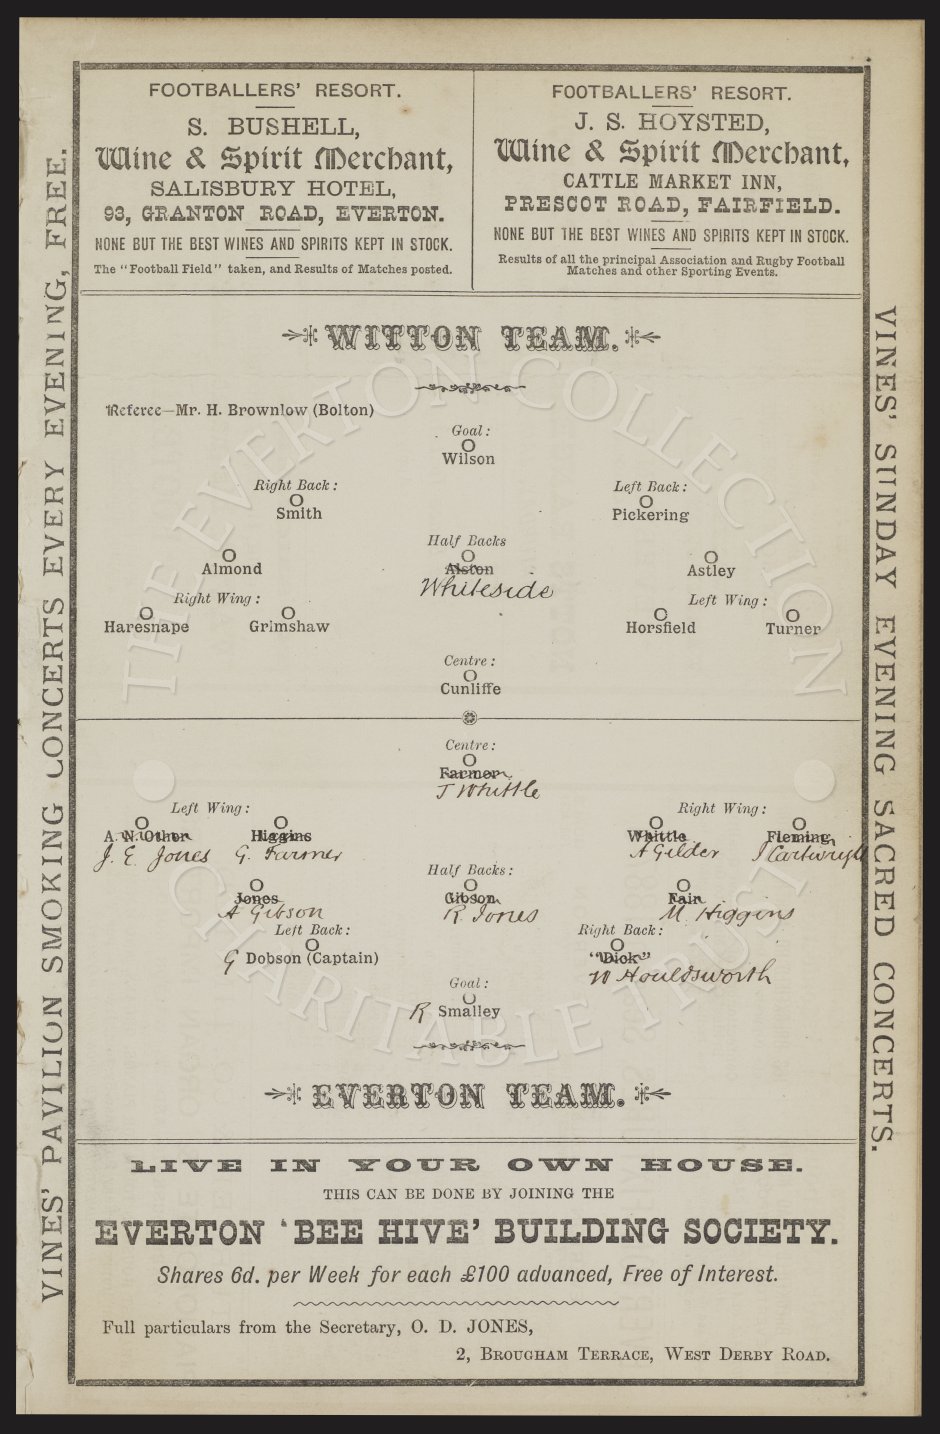 FOOTBALLERS' RESORT.
S. BUSHELL,
Wine & Spirit Merchant,
SALISBURY HOTEL,
93, GRANTON ROAD, EVERTON.
NONE BUT THE BEST WINES AND SPIRITS KEPT IN STOCK.
The "Football Field" taken, and Results of Matches posted.
FOOTBALLERS' RESORT.
J. S. HOYSTED,
Wine & Spirit Merchant,
CATTLE MARKET INN,
PRESCOT ROAD, FAIRFIELD.
NONE BUT THE BEST WINES AND SPIRITS KEPT IN STOCK.
Results of all the principal Association and Rugby Football
Matches and other Sporting Events.
VINES' PAVILION SMOKING CONCERTS EVERY EVENING, FREE.
VINES' SUNDAY EVENING SACRED CONCERTS.
WITTON TEAM.
Referee—Mr. H. Brownlow (Bolton)
Goal:
Wilson
Right Back: Left Back:
Smith Pickering
Half Backs
Almond Alston Astley
Whiteside
Right Wing: Left Wing:
Haresnape Grimshaw Horsfield Turner
Centre:
Cunliffe
Centre:
Farmer
J Whittle
Left Wing: Right Wing:
A. N. Other Higgins Whittle Fleming
J. E. Jones G. Farmer A Gilder J Cartwright
Half Backs:
Jones Gibson Fair
A Gibson R. Jones M. Higgins
Left Back: Right Back:
G Dobson (Captain) "Dick"
W Houldsworth
Goal:
R Smalley
EVERTON TEAM.
LIVE IN YOUR OWN HOUSE.
THIS CAN BE DONE BY JOINING THE
EVERTON 'BEE HIVE' BUILDING SOCIETY.
Shares 6d. per Week for each £100 advanced, Free of Interest.
Full particulars from the Secretary, O. D. JONES,
2, BROUGHAM TERRACE, WEST DERBY ROAD.
THE EVERTON COLLECTION
CHARITABLE TRUST